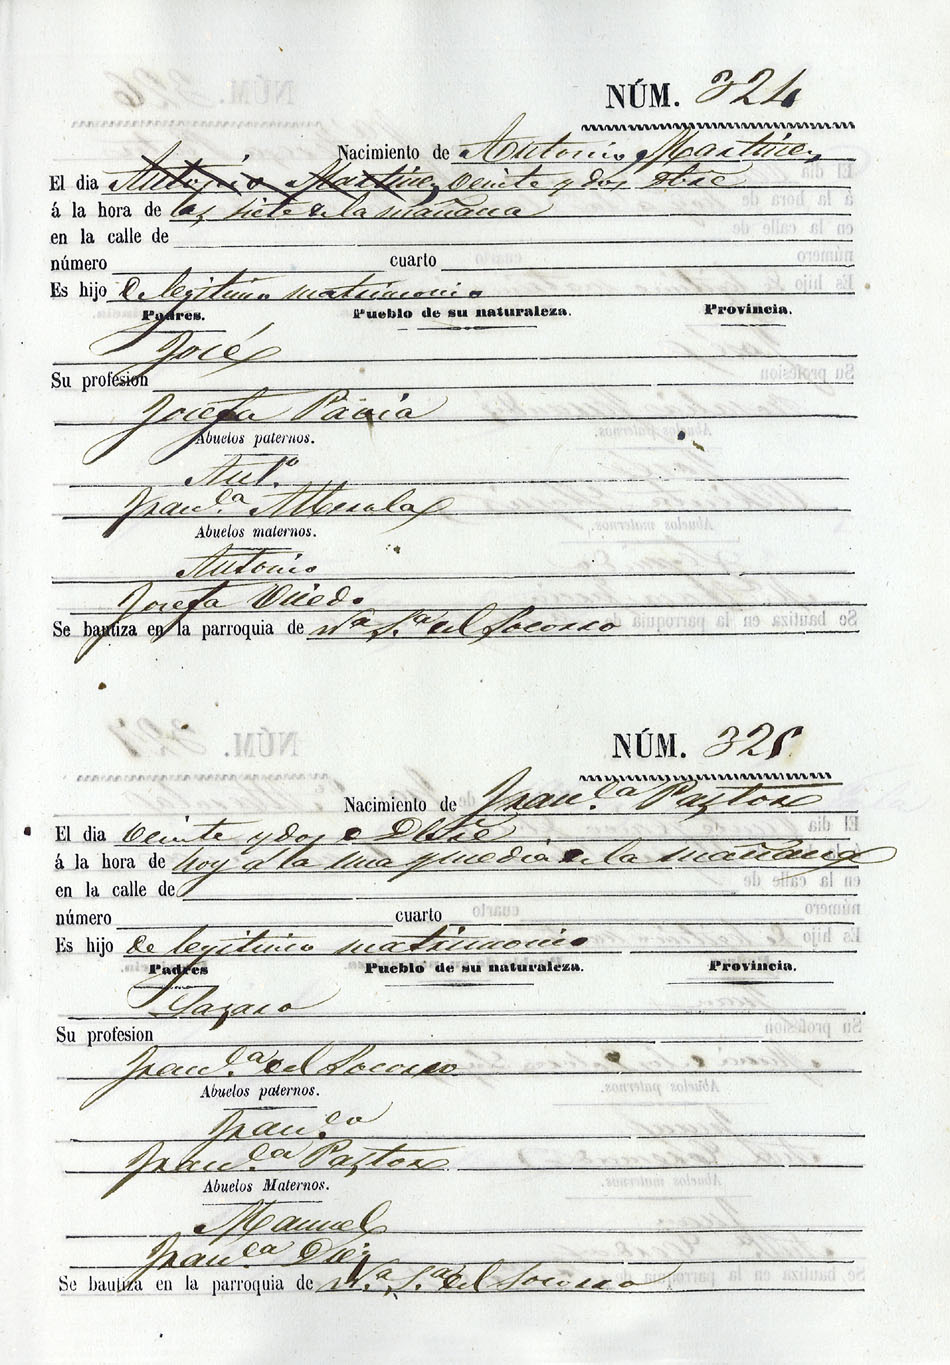 NÚM. 324
Nacimiento de Antonio Martinez
El dia Antonio Martinez veinte y dos Dbre
á la hora de las siete de la mañana
en la calle de
número cuarto
Es hijo de legitimo matrimonio
Padres. Pueblo de su naturaleza. Provincia.
José
Su profesion
Josefa Pavia
Abuelos paternos.
Ant.º
Fran.ca
Abuelos maternos.
Antonio
Josefa Oviedo
Se bautiza en la parroquia de N.ª S.ª del Socorro
NÚM. 325
Nacimiento de Fran.ca Pastor
El dia veinte y dos de Dbre
á la hora de hoy á la una y media de la mañana
en la calle de
número cuarto
Es hijo de legitimo matrimonio
Padres Pueblo de su naturaleza. Provincia.
Lazaro
Su profesion
Fran.ca del Socorro
Abuelos paternos.
Fran.co
Fran.ca Pastor
Abuelos Maternos.
Manuel
Fran.ca Diez
Se bautiza en la parroquia de N.ª S.ª del Socorro